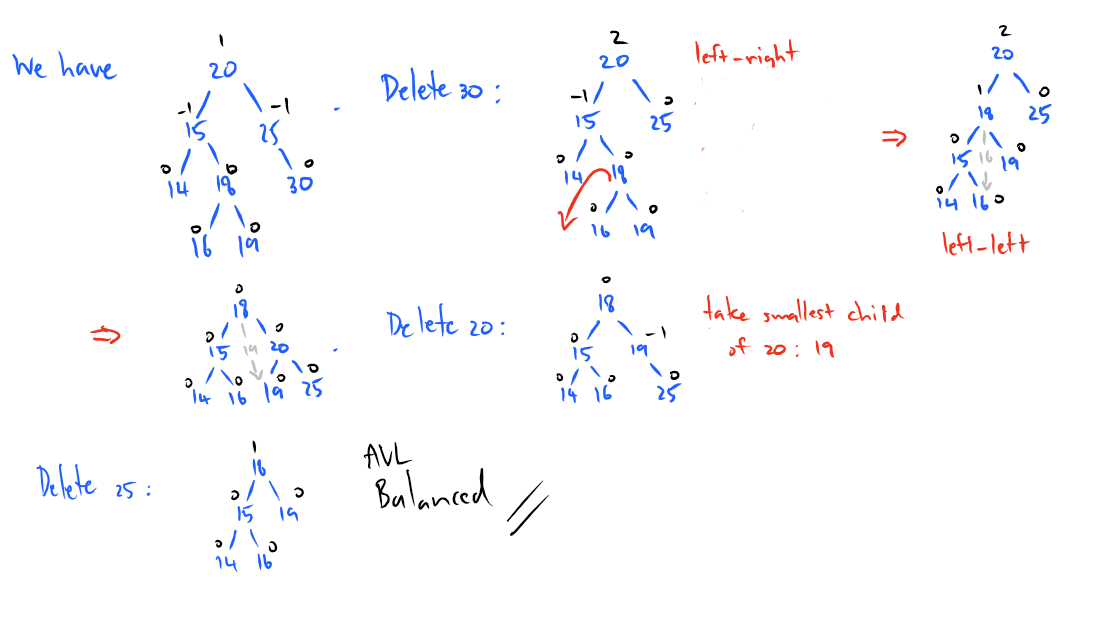 We have
1
20
-1 -1
15 25
0 0 0
14 18 30
0 0
16 19
.
Delete 30 :
2
20
-1 0
15 25
0 0
14 18
0 0
16 19
left-right
⇒
2
20
1 0
18 25
0 0
15 16 19
0 0
14 16
left-left
⇒
0
18
0 0
15 19 20
0 0 0 0
14 16 19 25
.
Delete 20 :
0
18
0 -1
15 19
0 0 0
14 16 25
take smallest child
of 20 : 19
Delete 25 :
1
18
0 0
15 19
0 0
14 16
AVL
Balanced